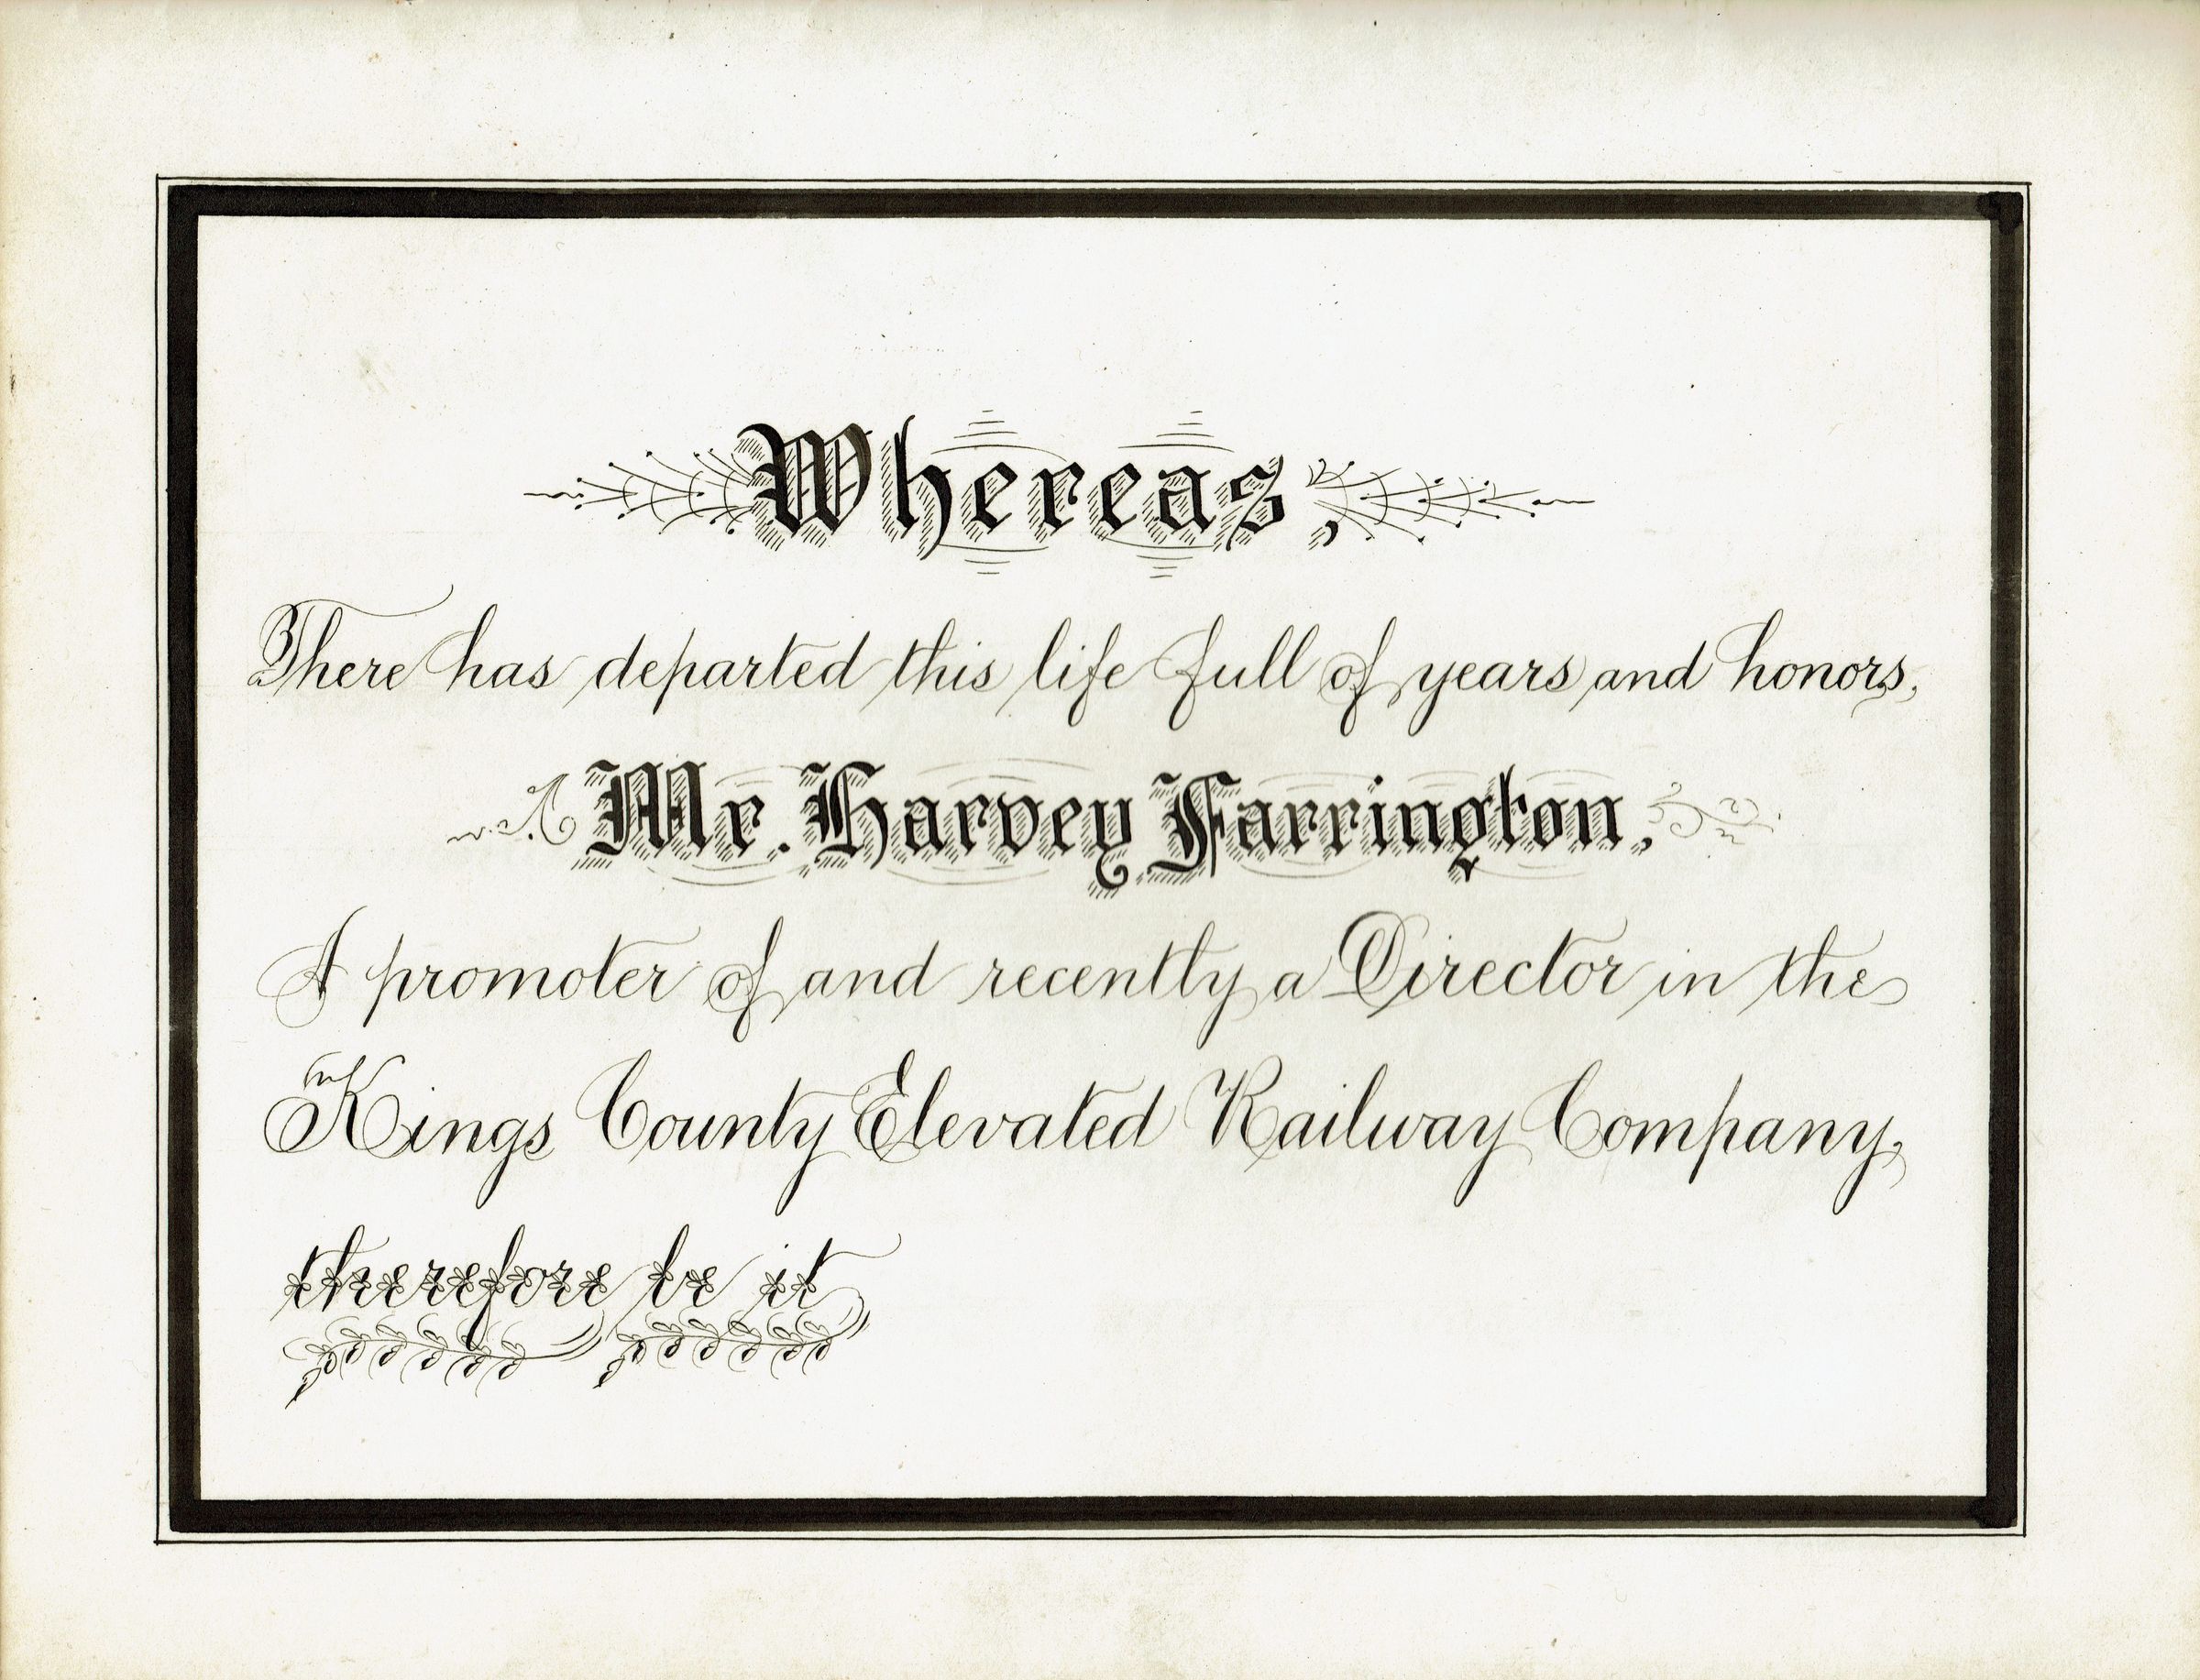 Whereas,
There has departed this life full of years and honors,
Mr. Harvey Farrington,
A promoter of and recently a Director in the
Kings County Elevated Railway Company,
therefore be it